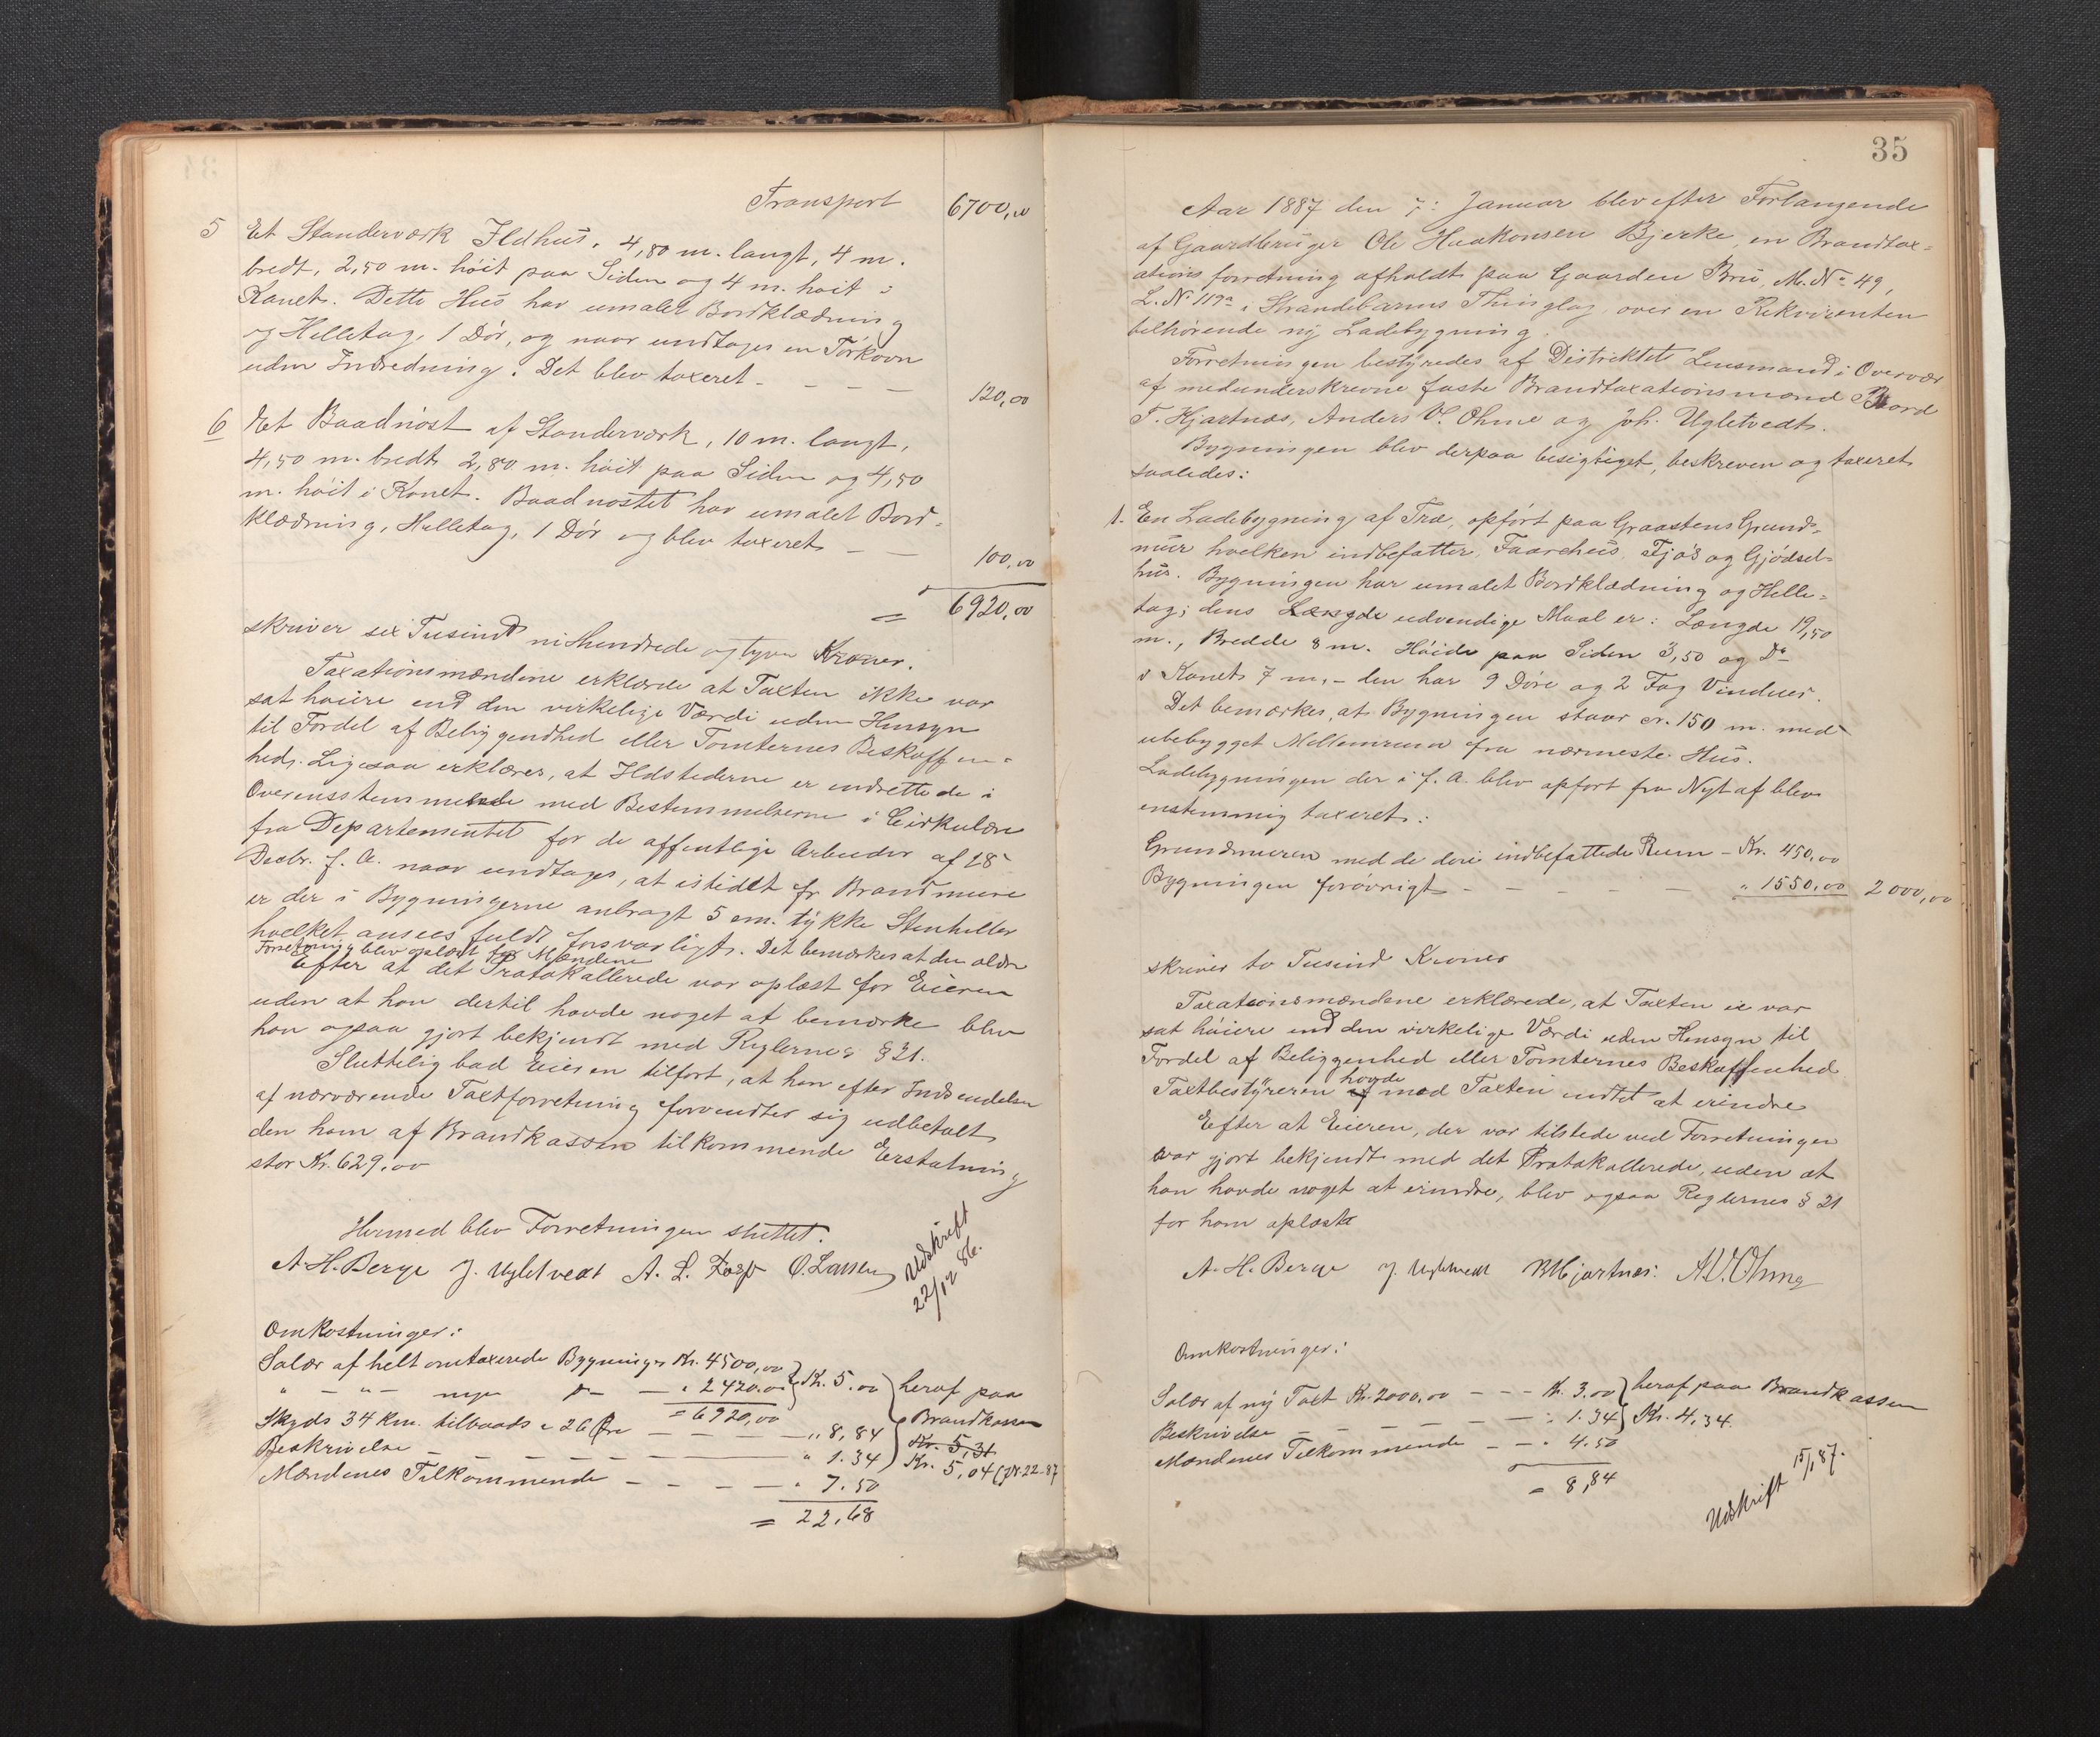 Transport 6700,00
5 Et Standerværk Ildhus, 4,80 m. langt, 4 m.
bredt, 2,50 m. höit paa Siden og 4 m. höit i
Kanet. Dette Hus har umalet Bordklædning
og Helletag, 1 Dör, og naar undtages en Törkovn
uden Indredning. Det blev taxeret - - - - 120,00
6 Et Baadnöst af Standerværk, 10 m. langt,
4,50 m. bredt 2,80 m. höit paa Siden og 4,50
m. höit i Kanet. Baadnöstet har umalet Bord-
klædning, Helletag, 1 Dör og blev taxeret - - 100,00
= 6920,00
skriver sex Tusind nihundrede og tyve Kroner.
Taxationsmændene erklærede at Taxten ikke var
sat höiere end den virkelige Værdi uden Hensyn
til Fordel af Beliggendhed eller Tomternes Beskaffen-
hed. Ligesaa erklæres, at Ildstederne er indrettede i
Overensstemmelse med Bestemmelserne i Cirkulære
fra Departementet for de offentlige Arbeider af 28
Decbr. f. A. naar undtages, at istedet for Brandmure
er der i Bygningerne anbragt 5 cm. tykke Stenheller
hvilket ansees fuldt forsvarligt. Det bemærkes at den ældre
Forretning blev oplæst for Mændene
Efter at det Protokollerede var oplæst for Eieren
uden at han dertil havde noget at bemærke blev
han ogsaa gjort bekjendt med Reglernes § 21.
Sluttelig bad Eieren tilfört, at han efter Indsendelsen
af nærværende Taxtforretning forventer sig udbetalt
den ham af Brandkassen tilkommende Erstatning
stor Kr. 629,00
Hermed blev Forretningen sluttet.
A. H. Berge J. Ugletvedt A. L. O. Larsen
Udskrift
22/12 86.
Omkostninger:
Salær af helt omtaxerede Bygninger Kr. 4500,00 } Kr. 5.00 } heraf paa
" - " - nye do - " 2420.00
= 6920,00
Brandkassen
Skyds 34 Km. tilbaads a 26 Öre - - - - " 8,84
Kr. 5,31
Beskrivelse - - - - - " 1.34
Kr. 5,04
Mændenes Tilkommende - - - - " 7.50
= 22,68
35
Aar 1887 den 7: Januar blev efter Forlangende
af Gaardbruger Ole Haakonsen Bjerke, en Brandtax-
ations forretning afholdt paa Gaarden Bru, M. No 49,
L. No 119a i Strandebarms Thinglag over en Rekvirenten
tilhörende ny Ladebygning.
Forretningen bestyredes af Distriktets Lensmand i Overvær
af medunderskrevne faste Brandtaxationsmænd Baard
T. Hjartnæs, Anders V. Ohme og Joh. Ugletvedt.
Bygningen blev derpaa besigtiget, beskreven og taxeret
saaledes:
1. En Ladebygning af Træ, opfört paa Graastens Grund-
mur hvilken indbefatter Faarehus, Fjös og Gjödsel-
hus. Bygningen har umalet Bordklædning og Helle-
tag; dens Længde udvendige Maal er: Længde 19,50
m., Bredde 8 m. Höide paa Siden 3,50 og Do
i Kanet 7 m. - den har 9 Döre og 2 Fag Vinduer.
Det bemærkes, at Bygningen staar cr. 150 m. med
ubebygget Mellemrum fra nærmeste Hus.
Ladebygningen der i f. A. blev opfört fra Nyt af blev
enstemmig taxeret:
Grundmuren med de deri indbefattede Rum - Kr. 450,00
Bygningen forövrigt - - - - - " 1550,00 2000,00
skriver to Tusind Kroner
Taxationsmændene erklærede, at Taxten ei var
sat höiere end den virkelige Værdi uden Hensyn til
Fordel af Beliggenhed eller Tomternes Beskaffenhed
Taxtbestyreren havde mod Taxten intet at erindre
Efter at Eieren, der var tilstede ved Forretningen
var gjort bekjendt med det Protokollerede, uden at
han havde noget at erindre, blev ogsaa Reglernes § 21
for ham oplæst
A. H. Berge J. Ugletvedt B. Hjartnæs. A. V. Ohme
Omkostninger:
Salær af ny Taxt Kr. 2000,00 - - - Kr. 3.00 } heraf paa Brandkassen
Beskrivelse - - - - - " 1.34 } Kr. 4,34.
Mændenes Tilkommende - - " 4.50
= 8,84
Udskrift 15/1 87.